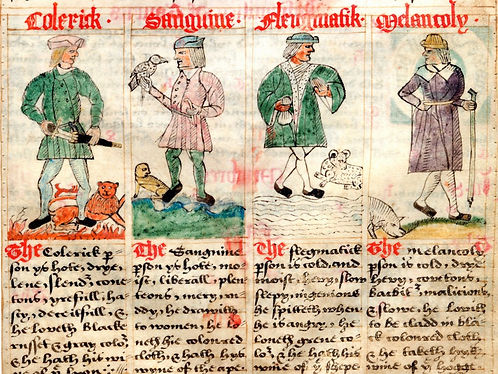 Colerick · Sanguine · Flewmatik · Melancoly ·
The Colerick p
son ys hote, drye,
lene, slendr, coue
tous, yrefull, ha
sty, deceitfull, &
he loveth Blacke
russet & gray colo
& he hath his wi
The Sanguine
pson ys hote, mo
ist, liberall, plen
teous, mery, ru
ddy, he drawith
to women, he lo
neth hie coloured
cloth, & hath hys
wyne of the ape
The flegmatick
pson is cold, and
moist, hevy, slow
slepy, ingenious
he spitteth when
he is angry, he
loueth grene co
lor, & he hath his
wyne of ye shepe
The melancoly
pson is cold, drye
hevy, couetous,
malicious,
& slowe, he lovith
to be cladd in bla
ck coloured cloth
& he taketh hys
wyne of ye hogge